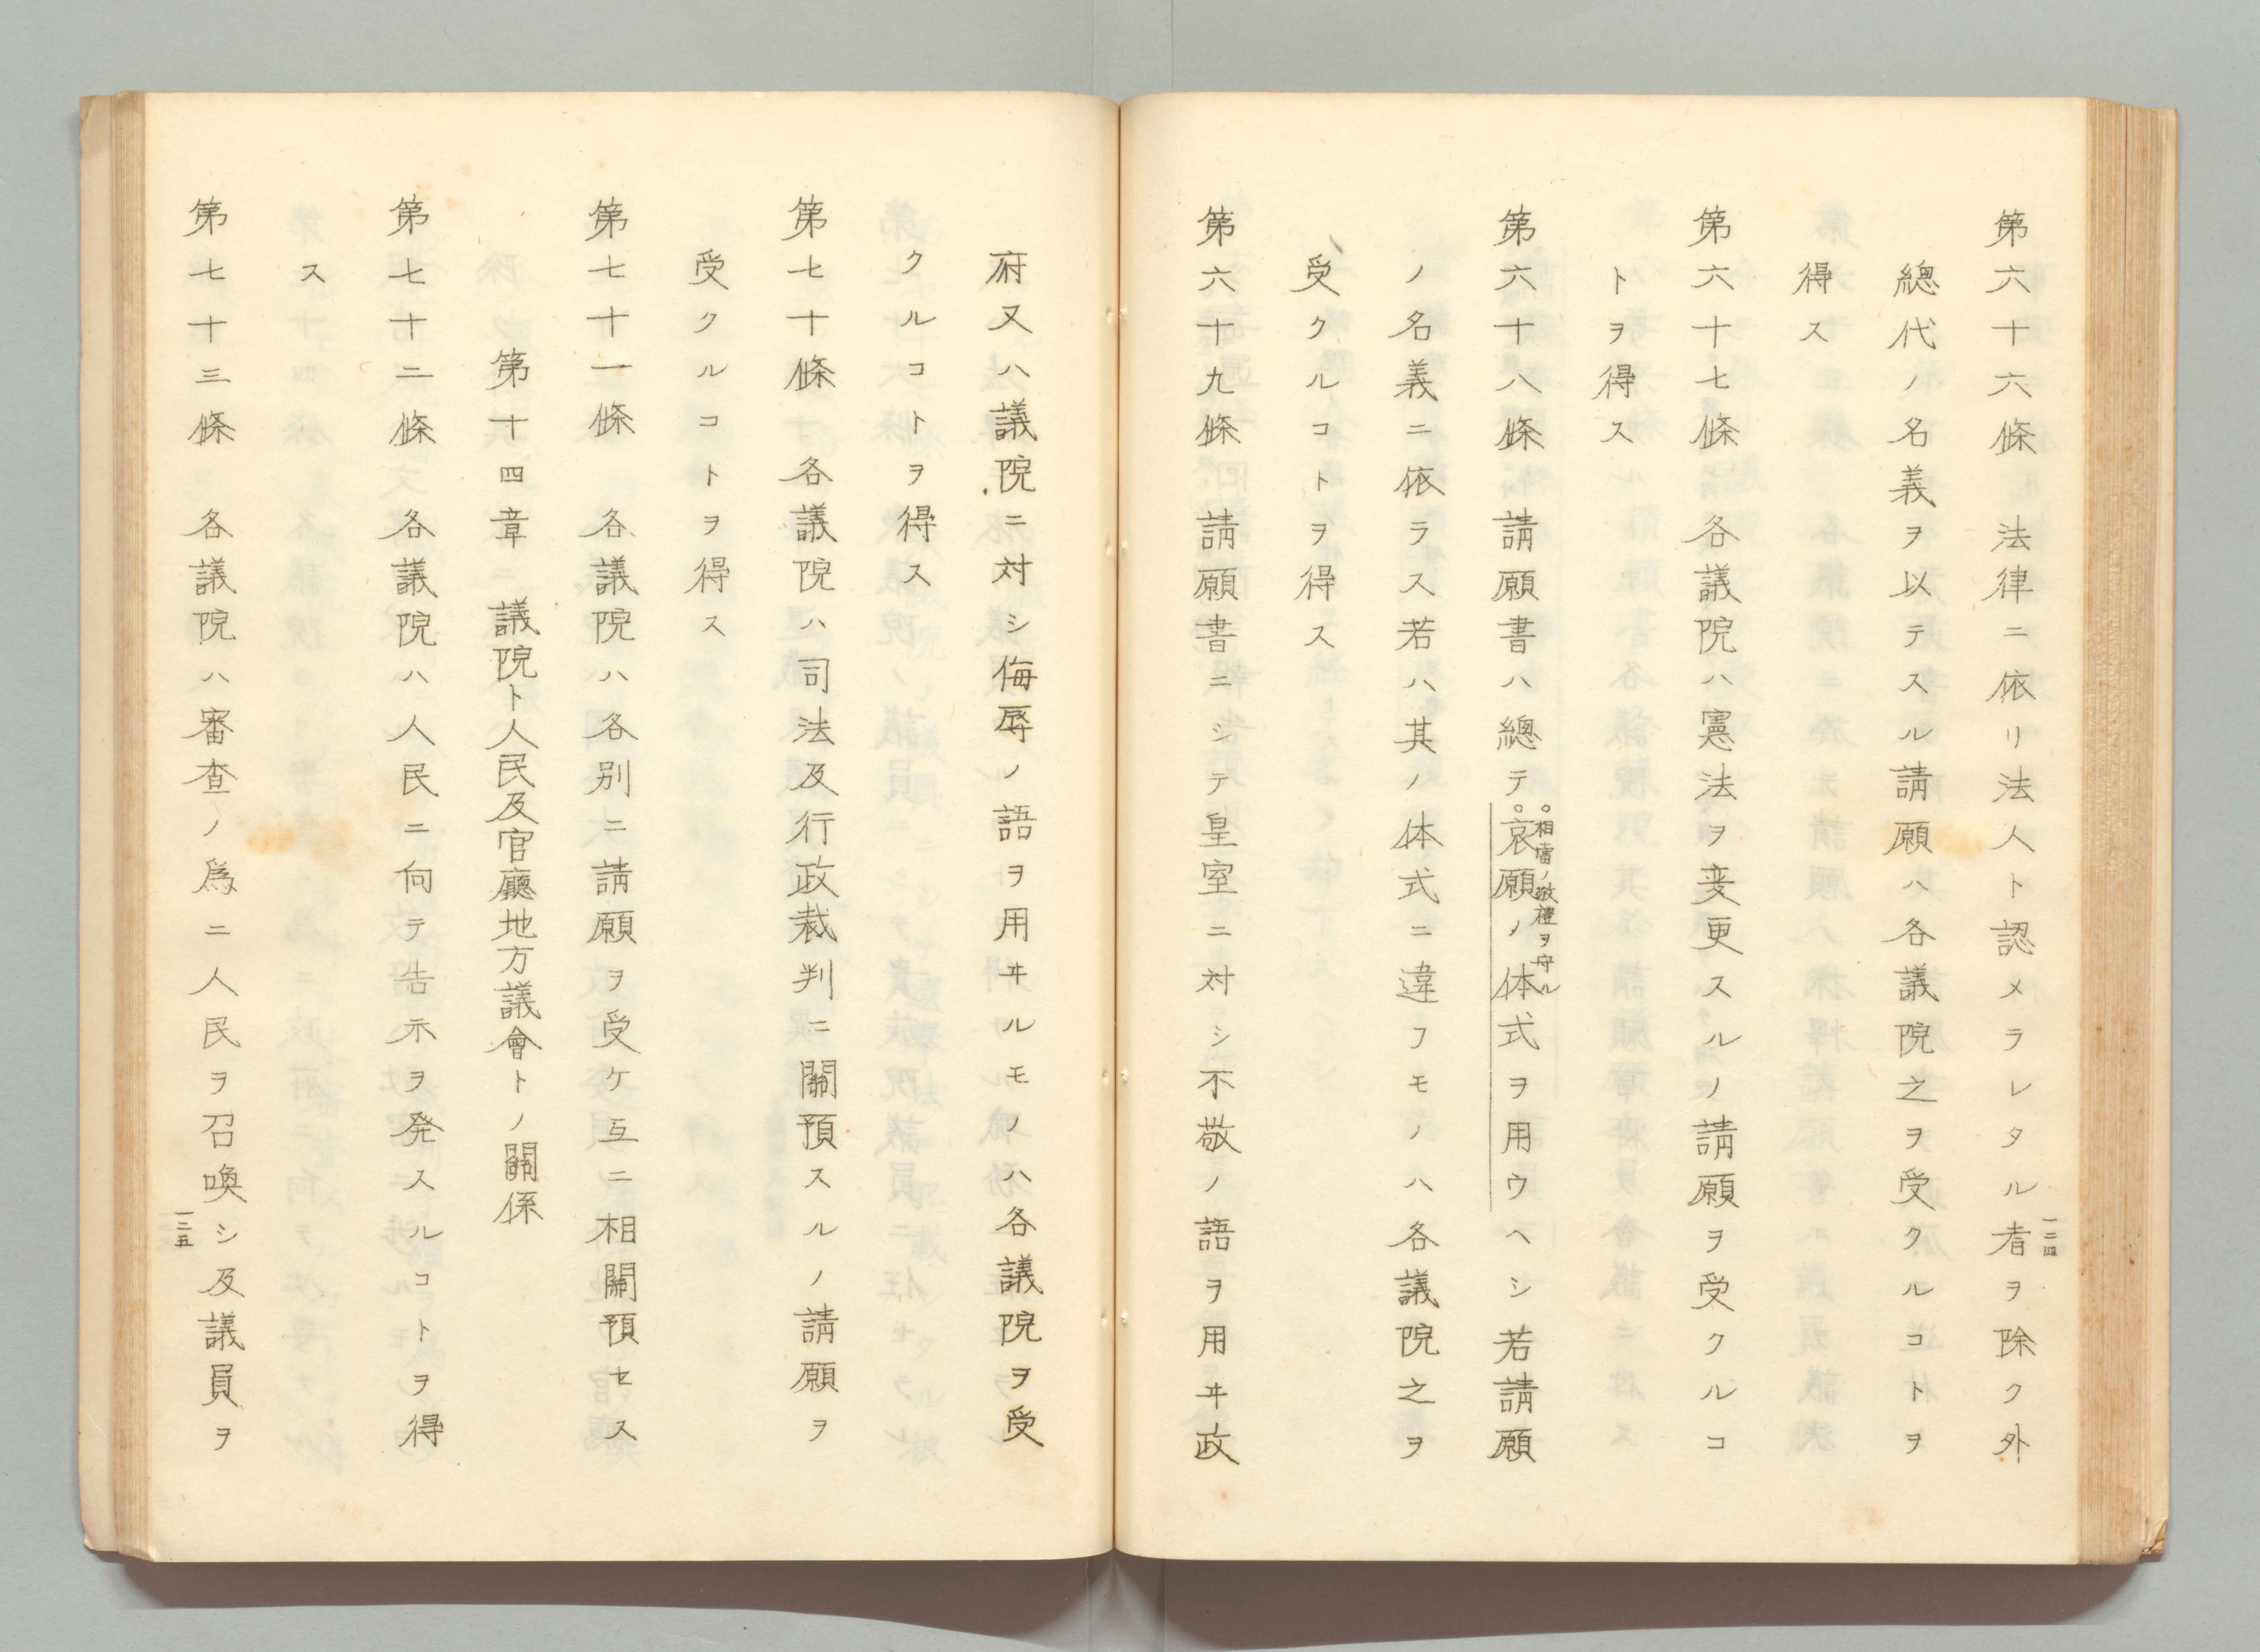 第六十六條　法律ニ依リ法人ト認メラレタル者ヲ除ク外
總代ノ名義ヲ以テスル請願ハ各議院之ヲ受クルコトヲ
得ス
第六十七條　各議院ハ憲法ヲ変更スルノ請願ヲ受クルコ
トヲ得ス
相當ノ敬禮ヲ守ル
第六十八條　請願書ハ總テ。哀願ノ体式ヲ用ウヘシ若請願
ノ名義ニ依ラス若ハ其ノ体式ニ違フモノハ各議院之ヲ
受クルコトヲ得ス
第六十九條　請願書ニシテ皇室ニ対シ不敬ノ語ヲ用ヰ政
一二四
府又ハ議院ニ対シ侮辱ノ語ヲ用ヰルモノハ各議院ヲ受
クルコトヲ得ス
第七十條　各議院ハ司法及行政裁判ニ關預スルノ請願ヲ
受クルコトヲ得ス
第七十一條　各議院ハ各別ニ請願ヲ受ケ互ニ相關預セス
第十四章　議院ト人民及官廳地方議會トノ關係
第七十二條　各議院ハ人民ニ向テ告示ヲ発スルコトヲ得
ス
第七十三條　各議院ハ審査ノ爲ニ人民ヲ召喚シ及議員ヲ
一二五